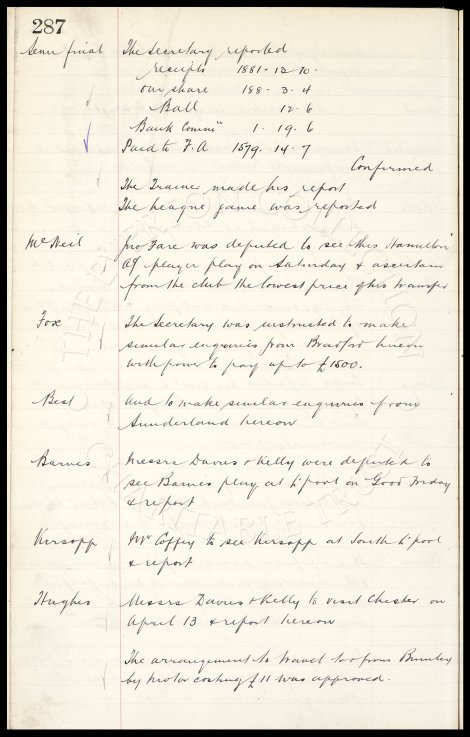 287
Semi final The Secretary reported
receipts 1881. 13. 10.
our share 188. 3. 4
Ball 12. 6
Bank Commn 1. 19. 6
Paid to F.A 1579. 14. 7
Confirmed
The Trainer made his report
The League game was reported
McNeil Mr Fare was deputed to see this Hamilton
player play on Saturday & ascertain
from the club the lowest price of his transfer
Fox The Secretary was instructed to make
similar enquiries from Bradford hereon
with power to pay up to £1500.
Best and to make similar enquiries from
Sunderland hereon
Barnes Messrs Davies & Kelly were deputed to
see Barnes play at L'pool on Good Friday
& report
Kirsopp Mr Coffey to see Kirsopp at South L'pool
& report
Hughes Messrs Davies & Kelly to visit Chester on
April 13 & report hereon
The arrangement to travel to & from Burnley
by motor costing £11 was approved.